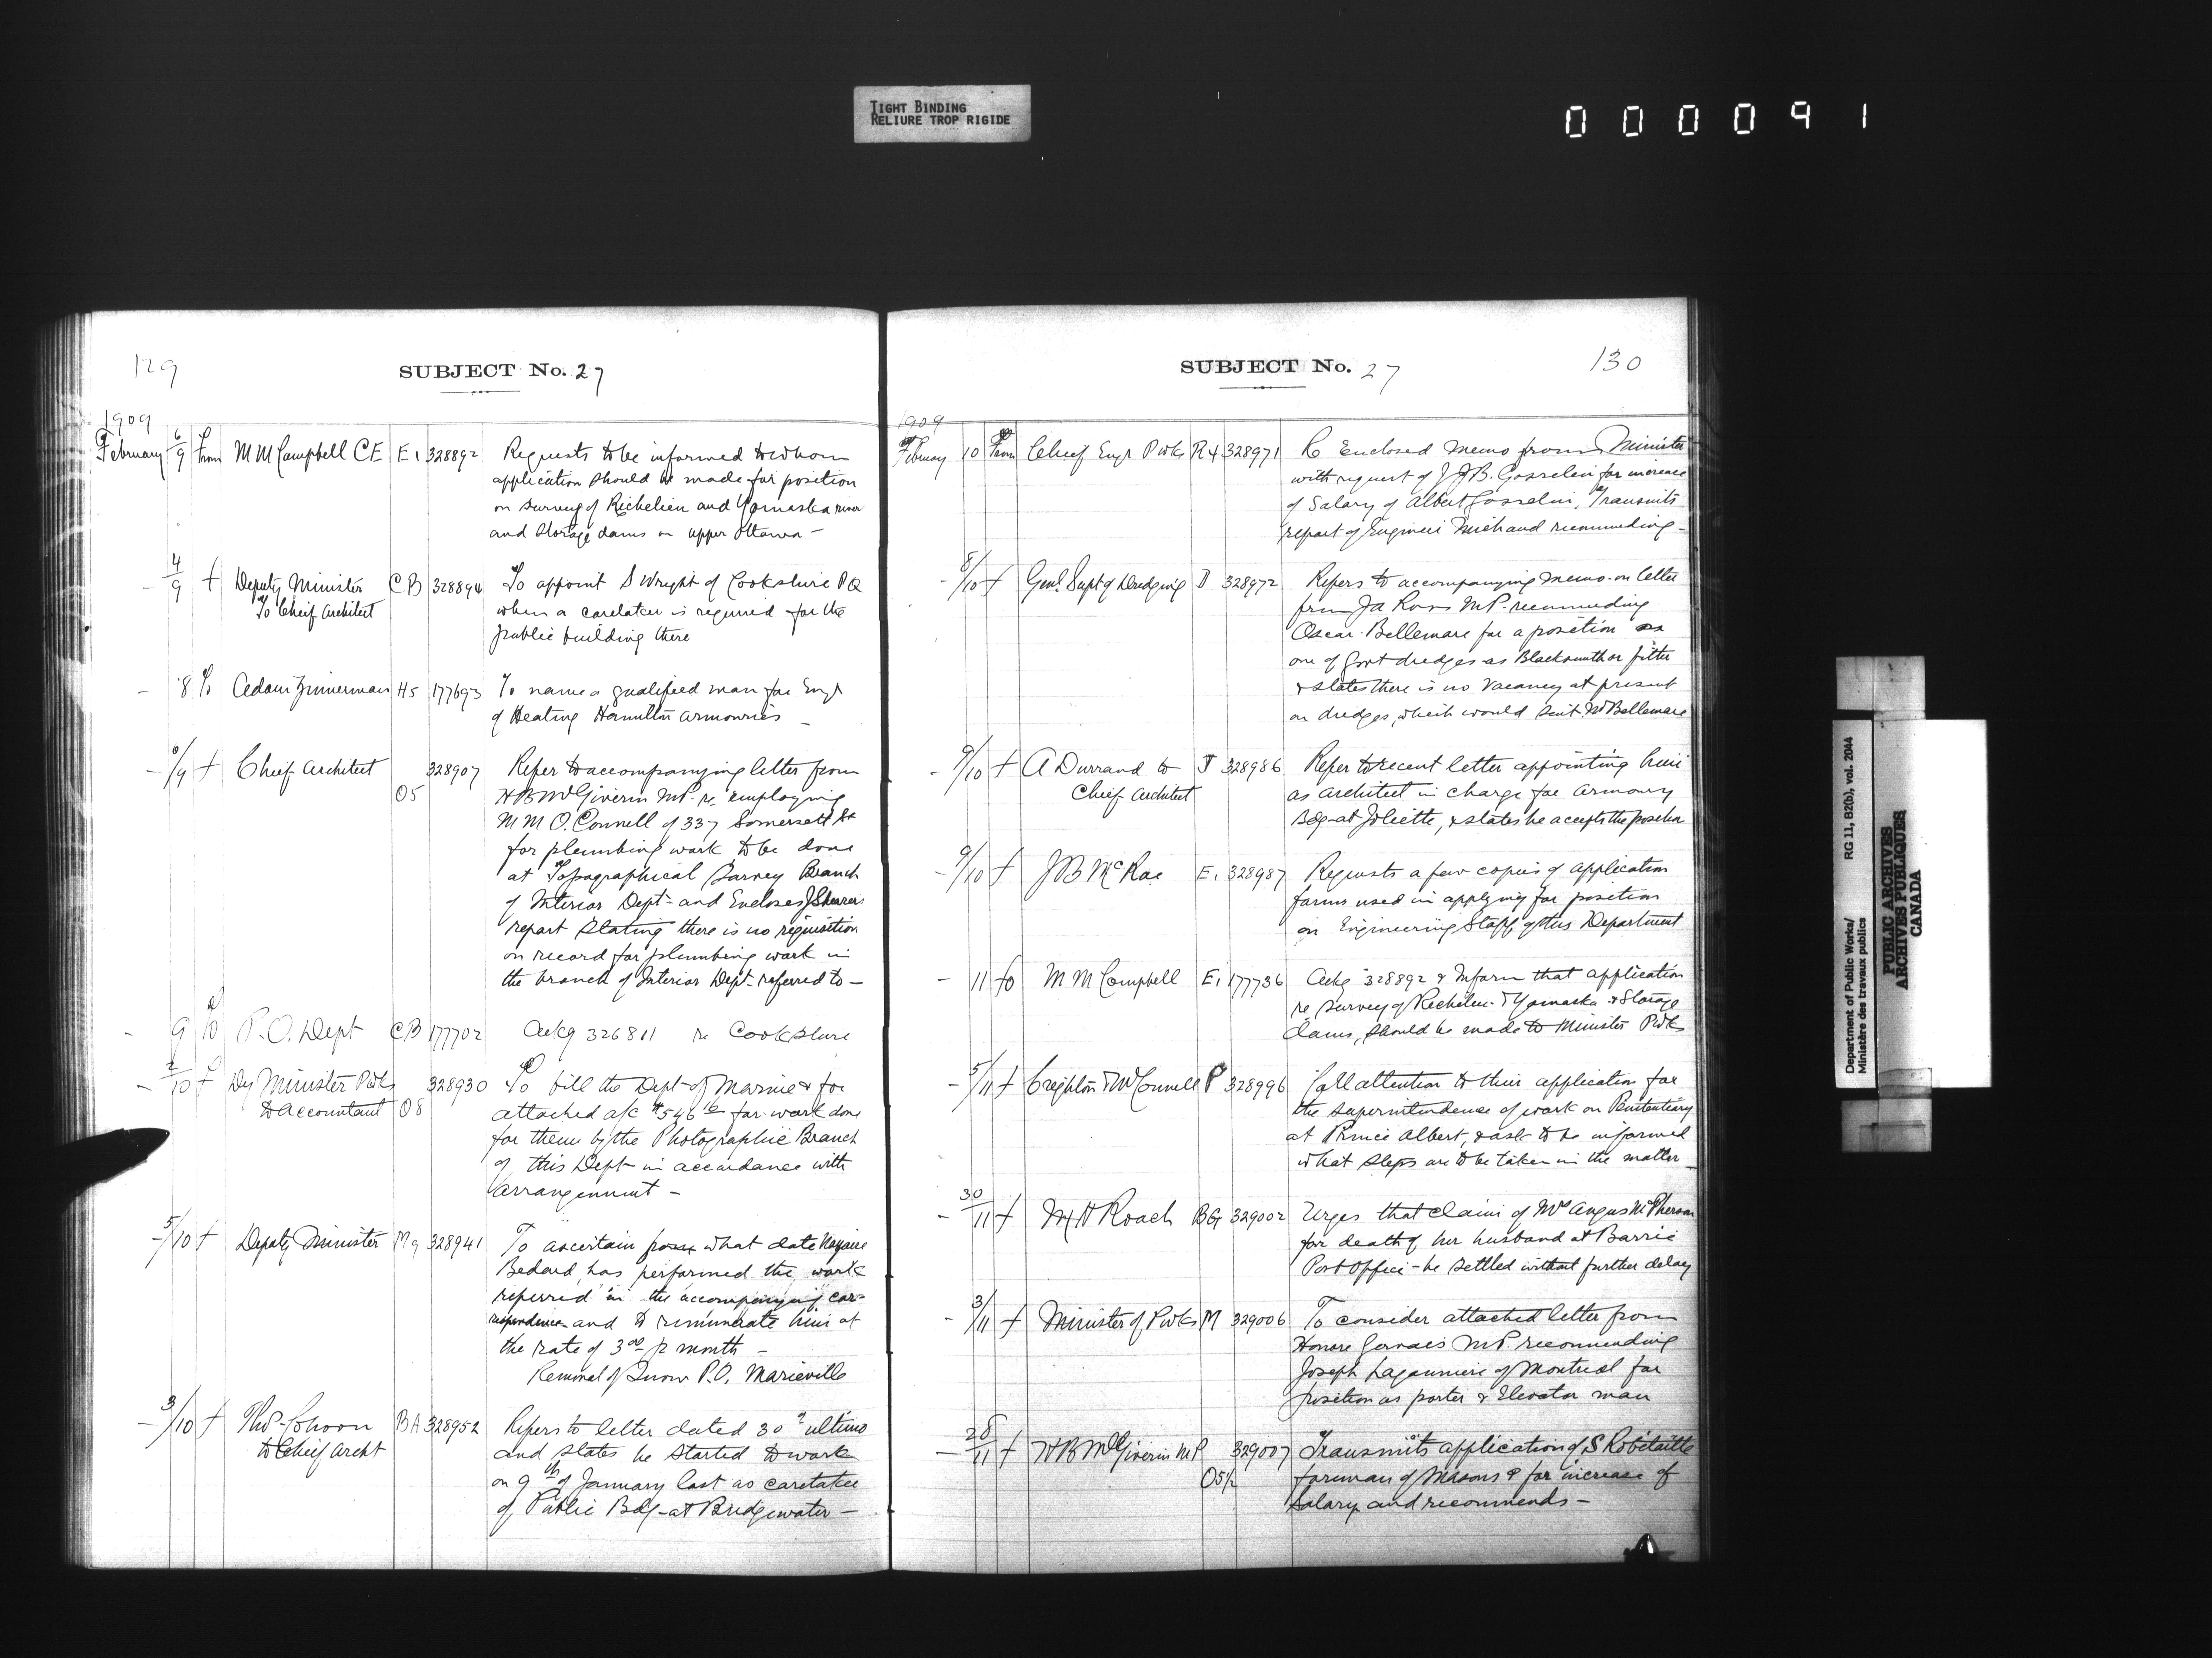 TIGHT BINDING
RELIURE TROP RIGIDE
000091
129
SUBJECT No. 27
1909
February 6/9 From M M Campbell CE E1 328892 Requests to be informed to whom
application should be made for position
on survey of Richelieu and Yamaska river
and storage dams on upper Ottawa –
– 4/9 f Deputy Minister CB 328894 To appoint S Wright of Cookshire PQ
To Chief Architect when a caretaker is required for the
public building there
– 8 To Adam Zimmerman H5 177693 To name a qualified man for Engr
of Heating Hamilton Armouries –
– 8/9 f Chief Architect 328907 Refer to accompanying letter from
O5 H B McGiverin MP. re employing
M M O.Connell of 337 Somersett St
for plumbing work to be done
at Topographical Survey Branch
of Interior Dept – and Encloses J Shearers
report stating there is no requisition
on record for plumbing work in
the branch of Interior Dept. referred to –
– 9 To P.O. Dept CB 177702 Ackg 326811 re Cookshire
– 2/10 f Dy Minister Pwks 328930 To bill the Dept of Marine & for
to Accountant O8 attached a/c $546 16 for work done
for them by the Photographic Branch
of this Dept in accordance with
arrangement –
– 5/10 f Deputy Minister M9 328941 To ascertain from what date
Bedard has performed the work
referred in the accompanying cor-
respondence and to remunerate him at
the rate of 3 00 p month –
Removal of Snow P.O. Marieville
– 3/10 f Thos Cohoon BA 328952 Refers to letter dated 30th ultimo
to Chief Archt and states he started to work
on 9th of January last as caretaker
of Public Bdg – at Bridgewater –
SUBJECT No. 27
130
1909
February 10 From Chief Engr Pwks R4 328971 R Enclosed memo from Minister
with request of J J B. Gosselin for increase
of Salary of Albert Gosselin, Transmits
report of Engineer Michaud recommending –
– 8/10 f Genl. Supt of Dredging D 328972 Refers to accompanying memo. on letter
from J A Ross MP. recommending
Oscar Bellemare for a position on
one of Govt dredges as Blacksmith or fitter
& states there is no vacancy at present
on dredges, which would suit Mr Bellemare
– 9/10 f A Durrand to J 328986 Refer to recent letter appointing him
Chief Architect as architect in charge for Armoury
Bdg – at Joliette, & states he accepts the position
– 9/10 f J B McRae E1 328987 Requests a few copies of application
forms used in applying for position
on Engineering Staff of this Department
– 11 To M M Campbell E1 177736 Ackg 328892 & Inform that application
re survey of Richelieu & Yamaska & Storage
dams, should be made to Minister Pwks
– 5/11 f Creighton & McConnell P 328996 Call attention to their application for
the superintendence of work on Penitentiary
at Prince Albert, & ask to be informed
what steps are to be taken in the matter –
– 30/11 f Roach BG 329002 Urges that claim of Mrs Angus McPherson
for death of her husband at Barrie
Post Office – be settled without further delay
– 3/11 f Minister of Pwks M 329006 To consider attached letter from
Honore Gervais M.P. recommending
Joseph of Montreal for
position as porter & Elevator man
– 28/11 f H B McGiverin MP 329007 Transmits application of S Robitaille
O5½ foreman of Masons & for increase of
Salary and recommends –
Department of Public Works/
Ministère des travaux publics
RG 11, B2(b), vol. 2044
PUBLIC ARCHIVES
ARCHIVES PUBLIQUES
CANADA